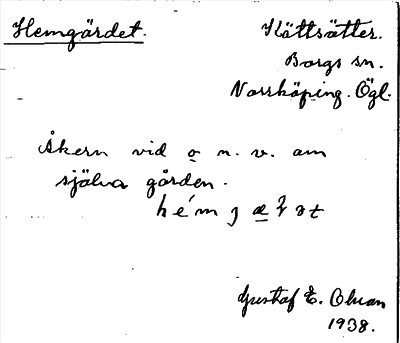 Hemgärdet.
Kättsätter.
Borgs sn.
Norrköping. Ögl.
Åkern vid o n. v. om
själva gården.
Gustaf E. Olsson
1938.